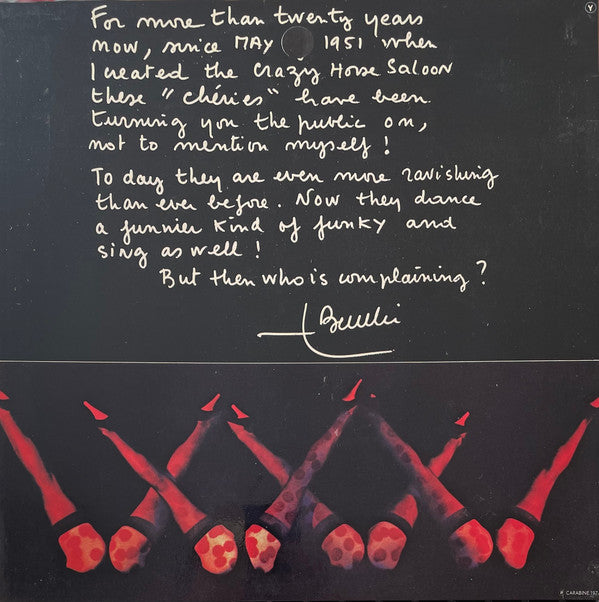 Y
For more than twenty years
now, since MAY 1951 when
I created the Crazy Horse Saloon
these "chéries" have been
turning you the public on,
not to mention myself!
To day they are even more ravishing
than ever before. Now they dance
a funnier kind of funky and
sing as well!
But then who is complaining?
CARABINE